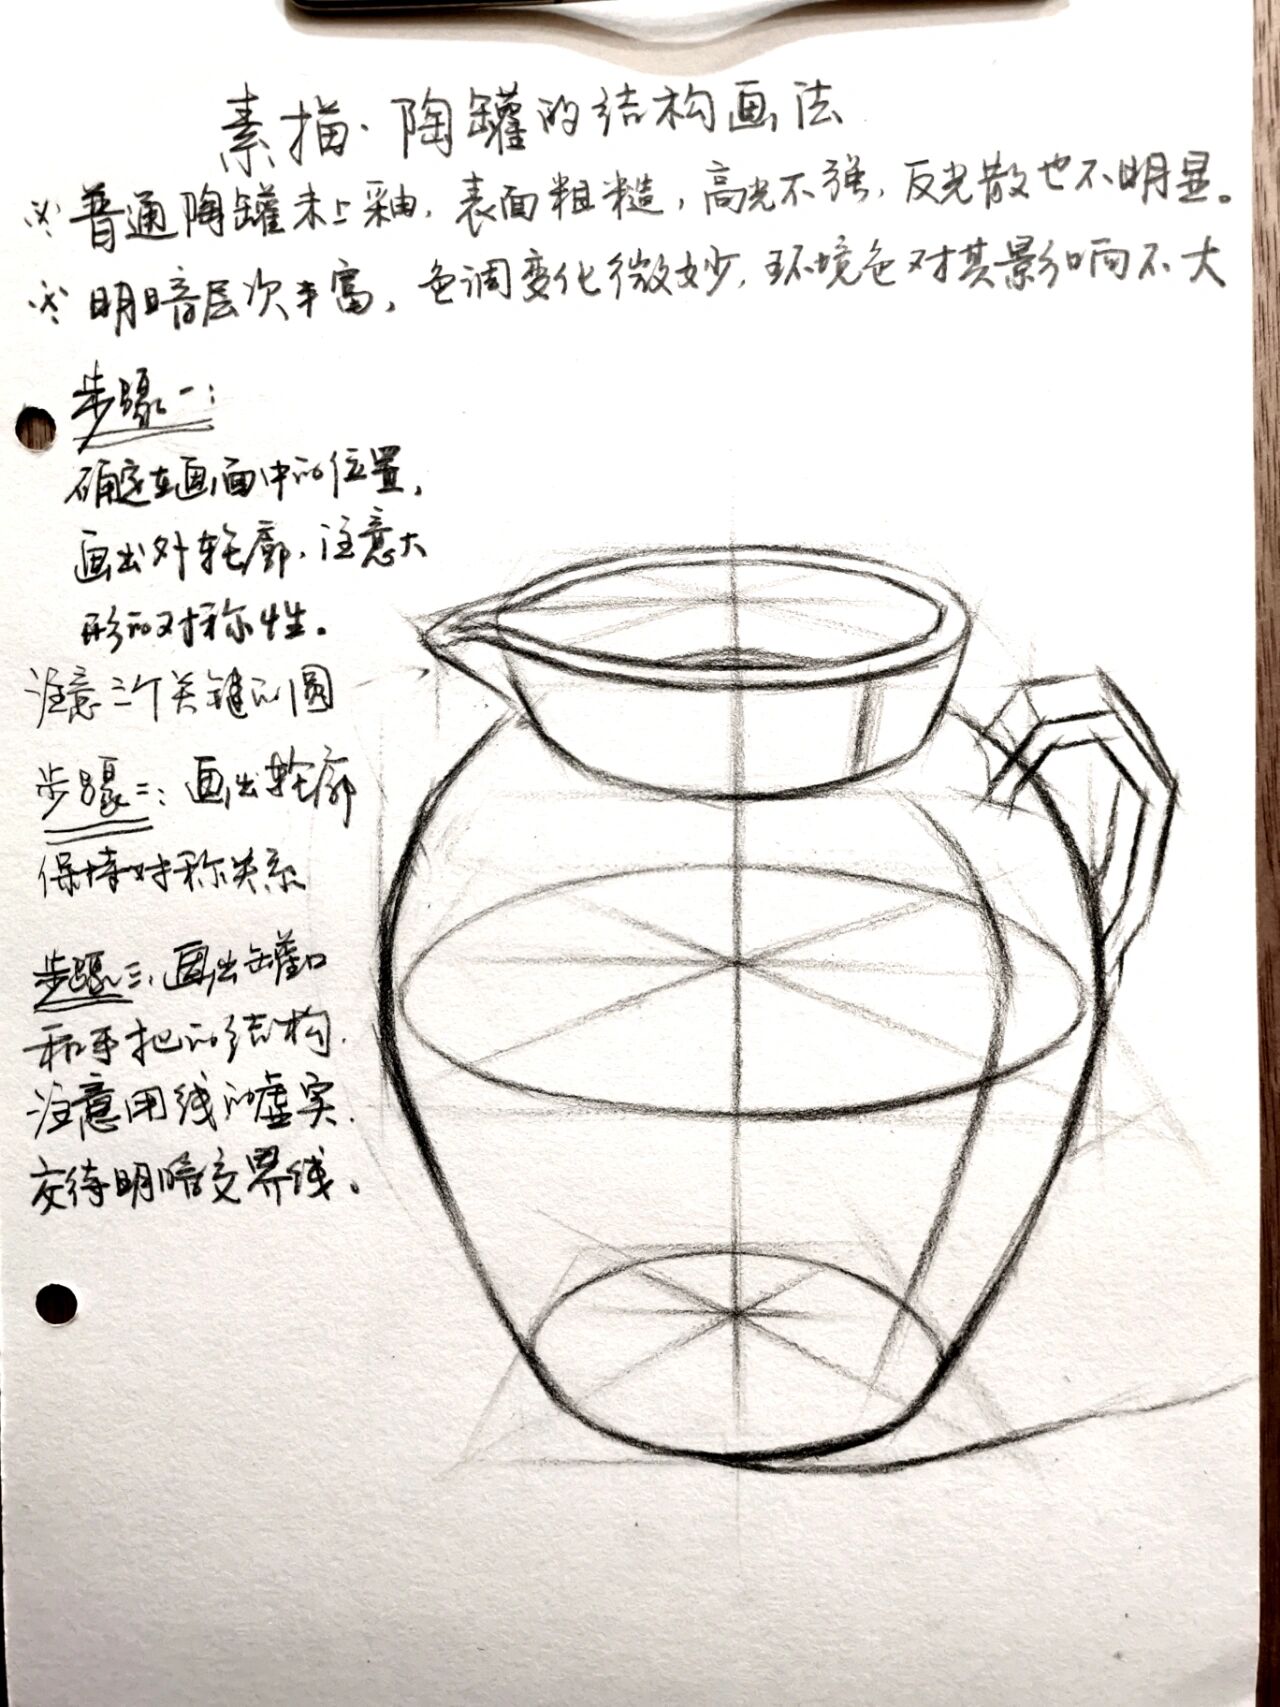 素描·陶罐的结构画法
※普通陶罐未上釉，表面粗糙，高光不强，反光散也不明显。
※明暗层次丰富，色调变化微妙，环境色对其影响不大
步骤一：
确定在画面中的位置，
画出外轮廓，注意大
形的对称性。
注意三个关键的圆
步骤二：画出轮廓
保持对称关系
步骤三，画出罐口
和手把的结构.
注意用线的虚实.
交待明暗交界线。